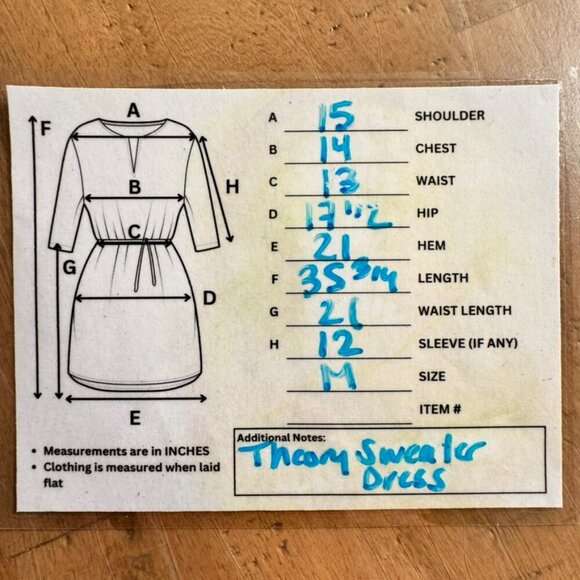 A 15 SHOULDER
B 14 CHEST
C 13 WAIST
D 17 1/2 HIP
E 21 HEM
F 35 3/4 LENGTH
G 21 WAIST LENGTH
H 12 SLEEVE (IF ANY)
M SIZE
ITEM #
A
F
B
H
C
G
D
E
• Measurements are in INCHES
• Clothing is measured when laid
flat
Additional Notes:
Theory Sweater
Dress